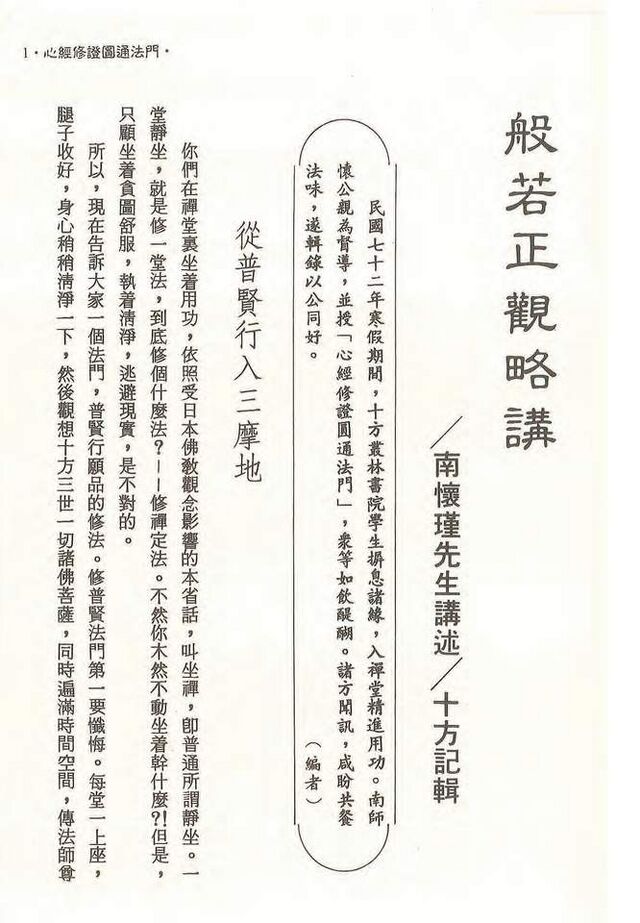 1•心經修證圓通法門•
般若正觀略講
／南懷瑾先生講述／十方記輯
民國七十二年寒假期間，十方叢林書院學生摒息諸緣，入禪堂精進用功。南師
懷公親為督導，並授「心經修證圓通法門」，衆等如飲醍醐。諸方聞訊，咸盼共餐
法味，遂輯錄以公同好。（編者）
從普賢行入三摩地
你們在禪堂裏坐着用功，依照受日本佛教觀念影響的本省話，叫坐禪，卽普通所謂靜坐。一
堂靜坐，就是修一堂法，到底修個什麼法？——修禪定法。不然你木然不動坐着幹什麼?!但是，
只顧坐着貪圖舒服，執着清淨，逃避現實，是不對的。
所以，現在告訴大家一個法門，普賢行願品的修法。修普賢法門第一要懺悔。每堂一上座，
腿子收好，身心稍稍清淨一下，然後觀想十方三世一切諸佛菩薩，同時遍滿時間空間，傳法師尊